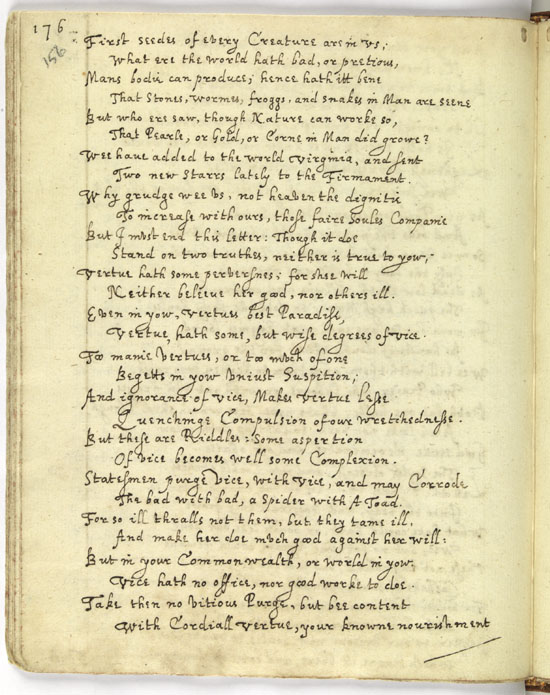 176
156
First seedes of every Creature are in vs,
What ere the world hath bad, or pretious,
Mans bodie can produce; hence hath itt bene
That Stones, wormes, froggs, and snakes in Man are seene
But who ere saw, though Nature can worke so,
That Pearle, or Gold, or Corne in Man did growe?
Wee have added to the world Virginia, and sent
Two new Starrs lately to the Firmament.
Why grudge wee vs, not heaven the dignitie
To increase with ours, those faire Soules Companie
But I must end this letter: Though it doe
Stand on two truthes, neither is true to you,
Vertue hath some perversnes; for shee will
Neither believe her good, nor others ill.
Even in yow, vertues best Paradise,
Vertue, hath some, but wise degrees of vice.
Too manie Vertues, or too much of one
Begetts in yow vniust Suspition;
And ignorance of vice, Makes vertue lesse
Quenchinge Compulsion of our wretchednesse.
But these are Riddles: Some aspertion
Of vice becomes well some Complexion.
Statesmen purge vice, with vice, and may Corrode
The bad with bad, a Spider with A Toad.
For so ill thralls not them, but they tame ill.
And make her doe much good against her will:
But in your Common wealth, or world in yow
Vice hath no office, nor good worke to doe.
Take then no vitious Purge, but bee content
With Cordiall vertue, your knowne nourishment